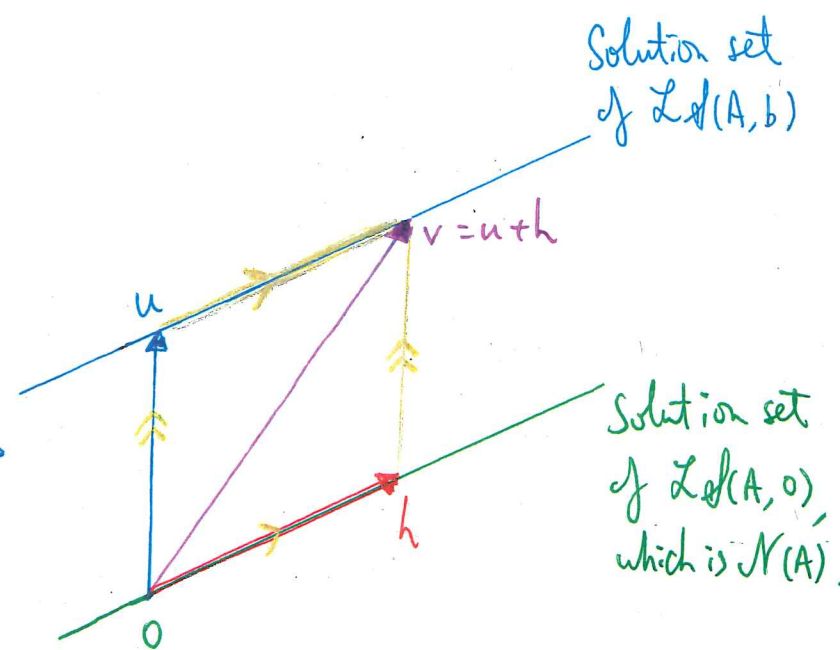 Solution set
of LS(A,b)
v = u+h
u
Solution set
of LS(A,0),
which is N(A).
h
0